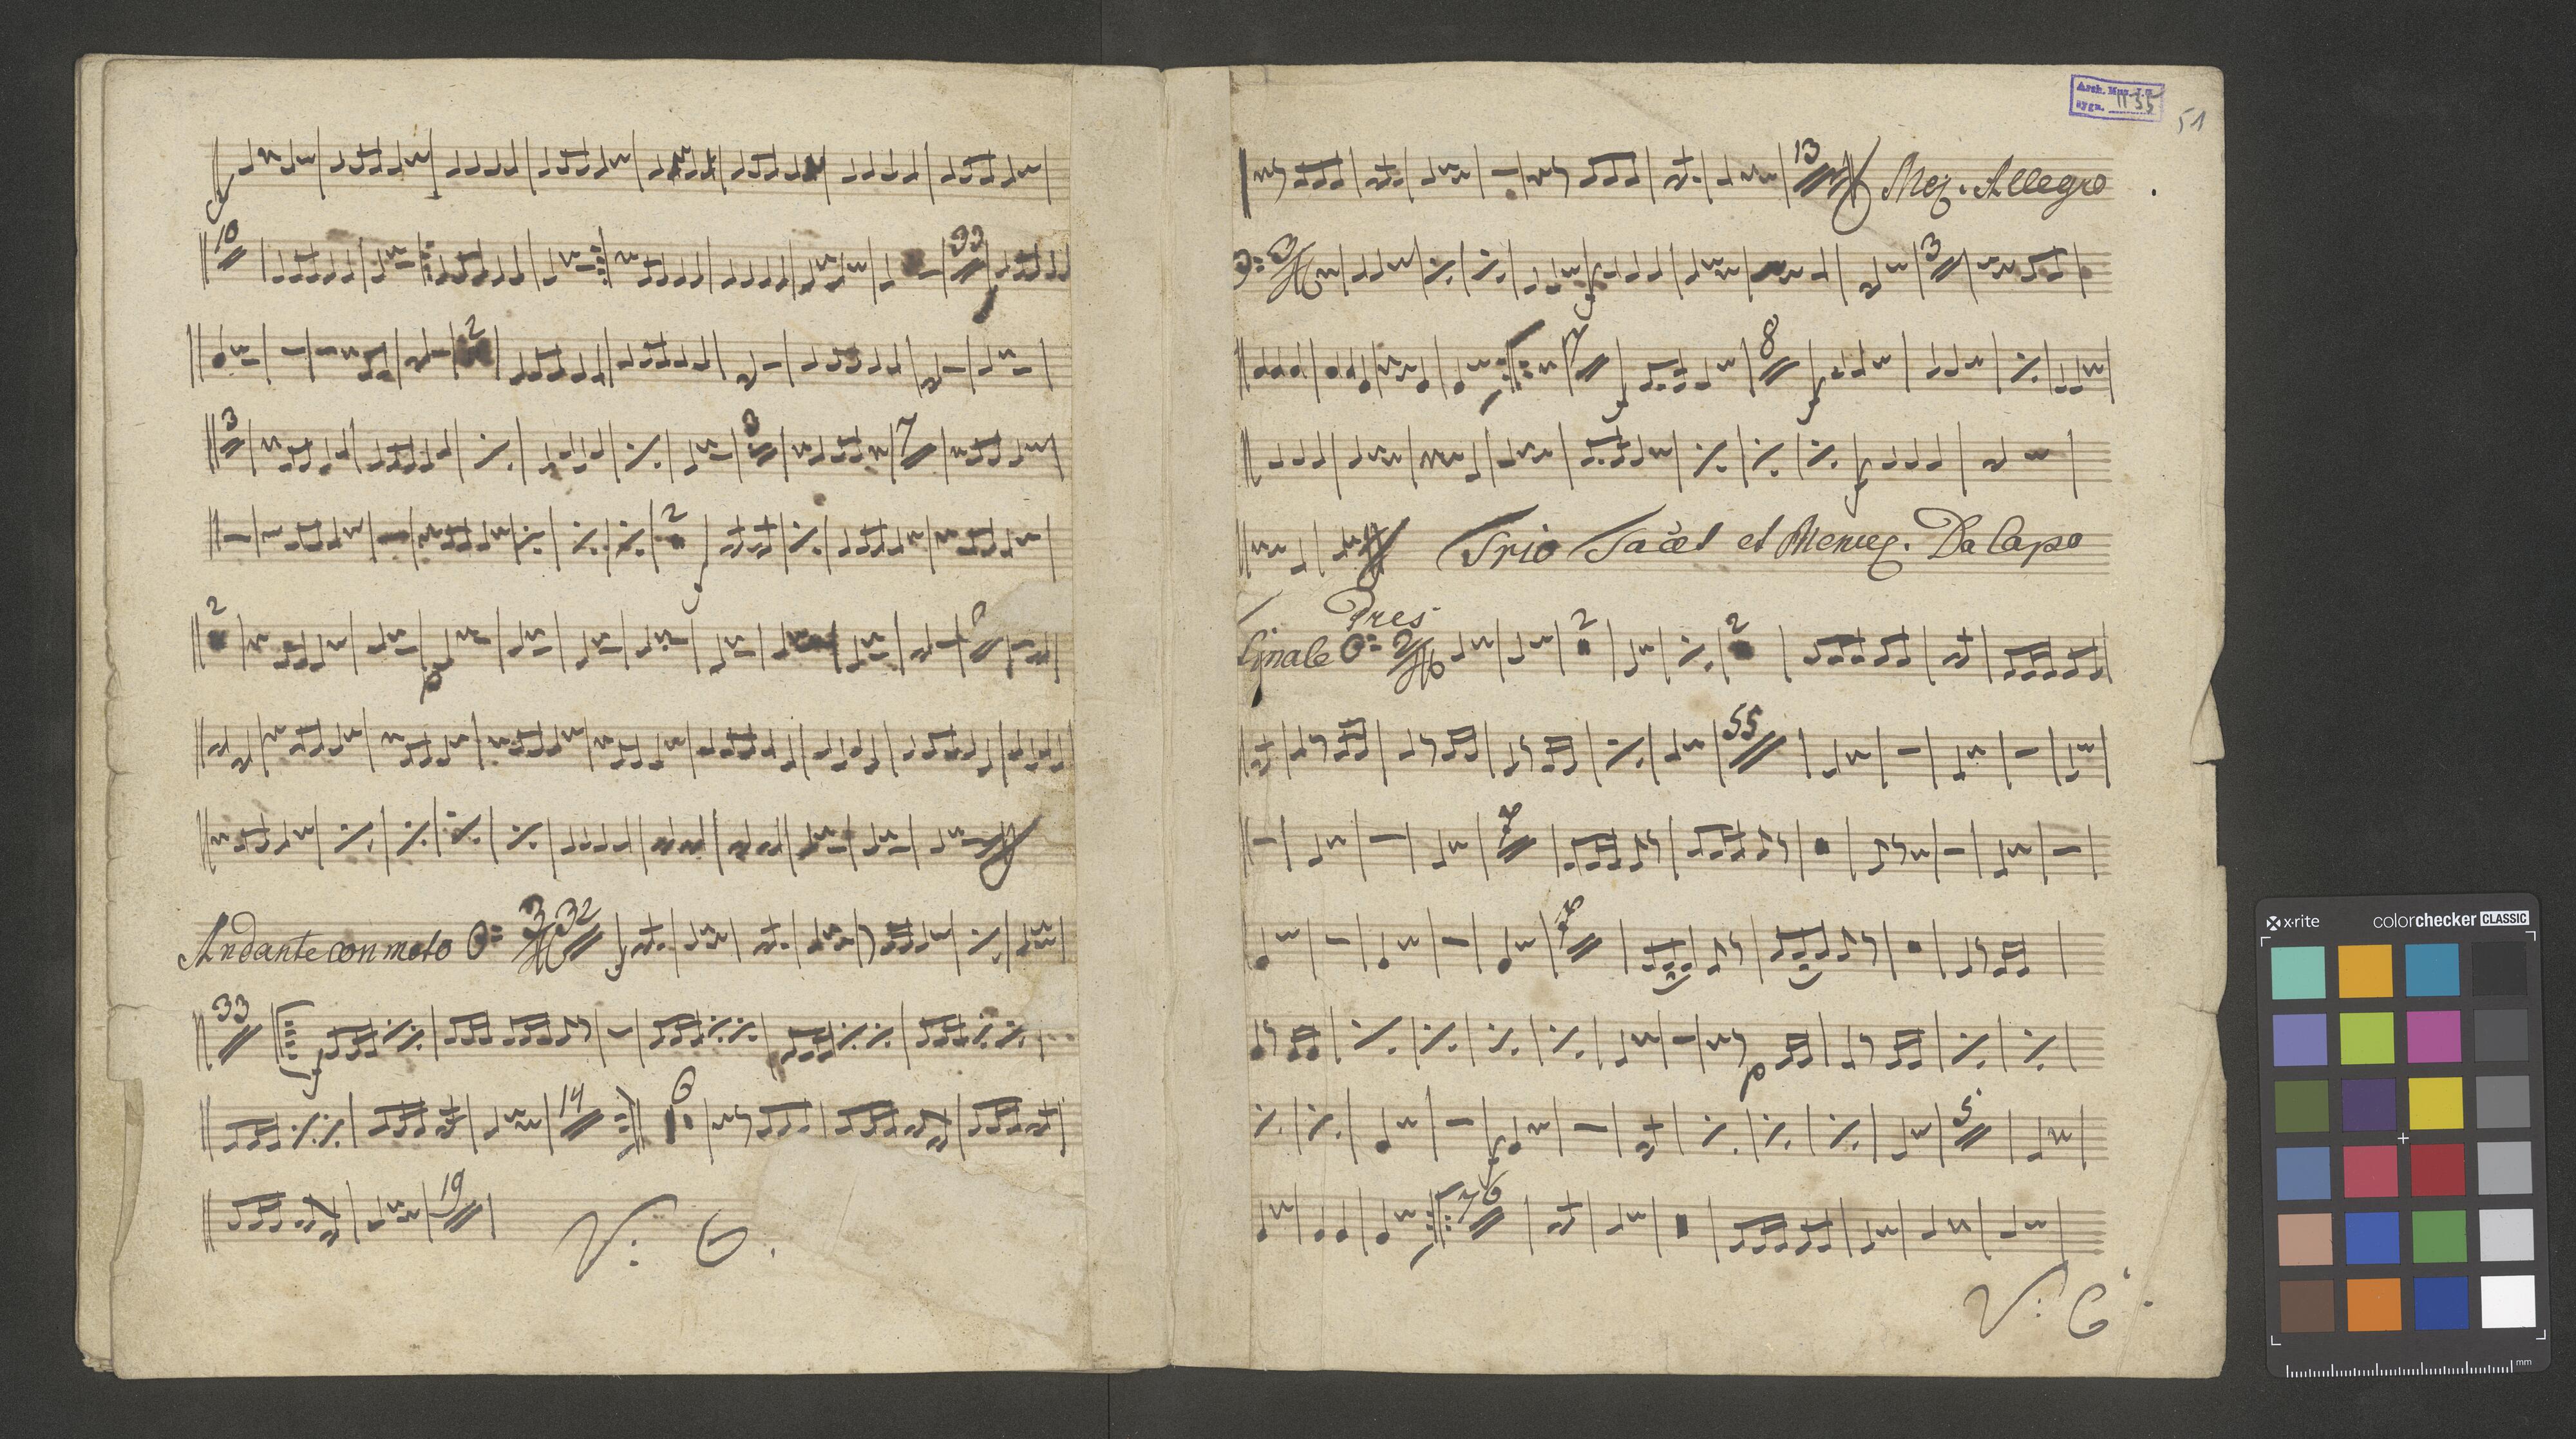 10
33
2
3
3
7
2
2
p
Andante con moto 3 32
33
f
14
6
19
V:
Arch. Muz. J.G.
sygn. 1135
51
13
Mez. Allegro
3
3
8
f
f
Trio Tacet et Menuez. Da Capo
Pres
Finale 2
2
2
55
p
5
f
76
V:
x·rite
colorchecker CLASSIC
mm